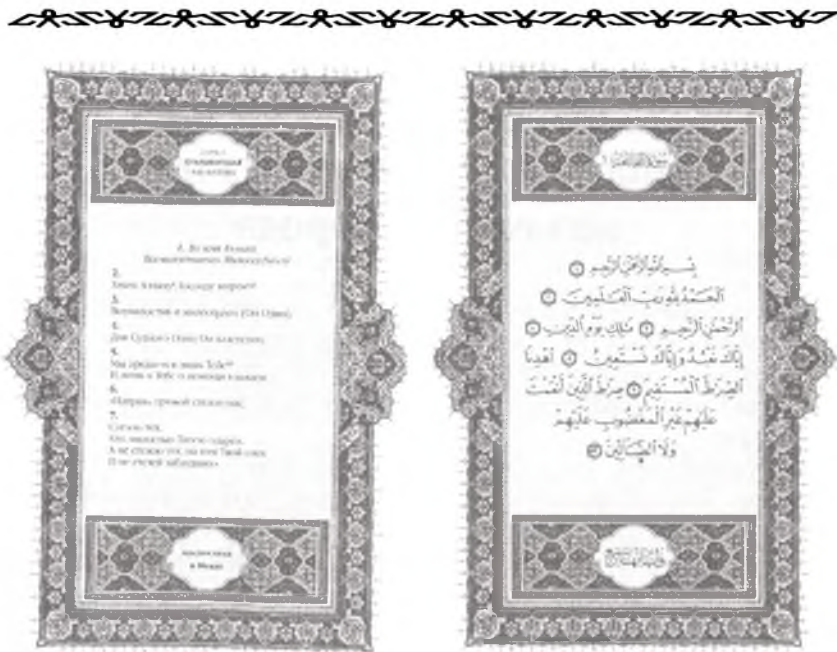 ОТКРЫВАЮЩАЯ
1. Во имя Аллаха
Всемилостивого, Милосердного!
2.
Хвала Аллаху, Господу миров
3.
Всемилостив и милосерден (Он Один),
4.
Дня Судного Один Он властелин.
5.
Мы предаемся лишь Тебе
И лишь к Тебе о помощи взываем:
6.
«Направь прямой стезею нас,
7.
Стезею тех,
Кто милостью Твоею одарен,
А не стезею тех, на ком Твой гнев
И не стезей заблудших».
в Мекке
سورة الفاتحة
بِسْمِ اللَّهِ الرَّحْمَٰنِ الرَّحِيمِ
الْحَمْدُ لِلَّهِ رَبِّ الْعَالَمِينَ
الرَّحْمَٰنِ الرَّحِيمِ مَالِكِ يَوْمِ الدِّينِ
إِيَّاكَ نَعْبُدُ وَإِيَّاكَ نَسْتَعِينُ اهْدِنَا
الصِّرَاطَ الْمُسْتَقِيمَ صِرَاطَ الَّذِينَ أَنْعَمْتَ
عَلَيْهِمْ غَيْرِ الْمَغْضُوبِ عَلَيْهِمْ
وَلَا الضَّالِّينَ